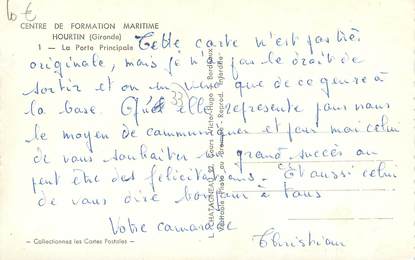 10 €
CENTRE DE FORMATION MARITIME
HOURTIN (Gironde)
1 - La Porte Principale
Cette carte n'est pas très
originale, mais je n'ai pas le droit de
sortir et on ne vend que de ce genre à
la base. Qu'elle représente pour nous
33
le moyen de communiquer et pour moi celui
de vous souhaiter un grand succès ou
peut être des félicitations. Et aussi celui
de vous dire bonjour à tous
Votre camarade
Christian
- Collectionnez les Cartes Postales -
L. CHATAGNEAU, 60 Cours Victor-Hugo - Bordeaux
Véritable Photo au Bromure - Reprod. Interdite